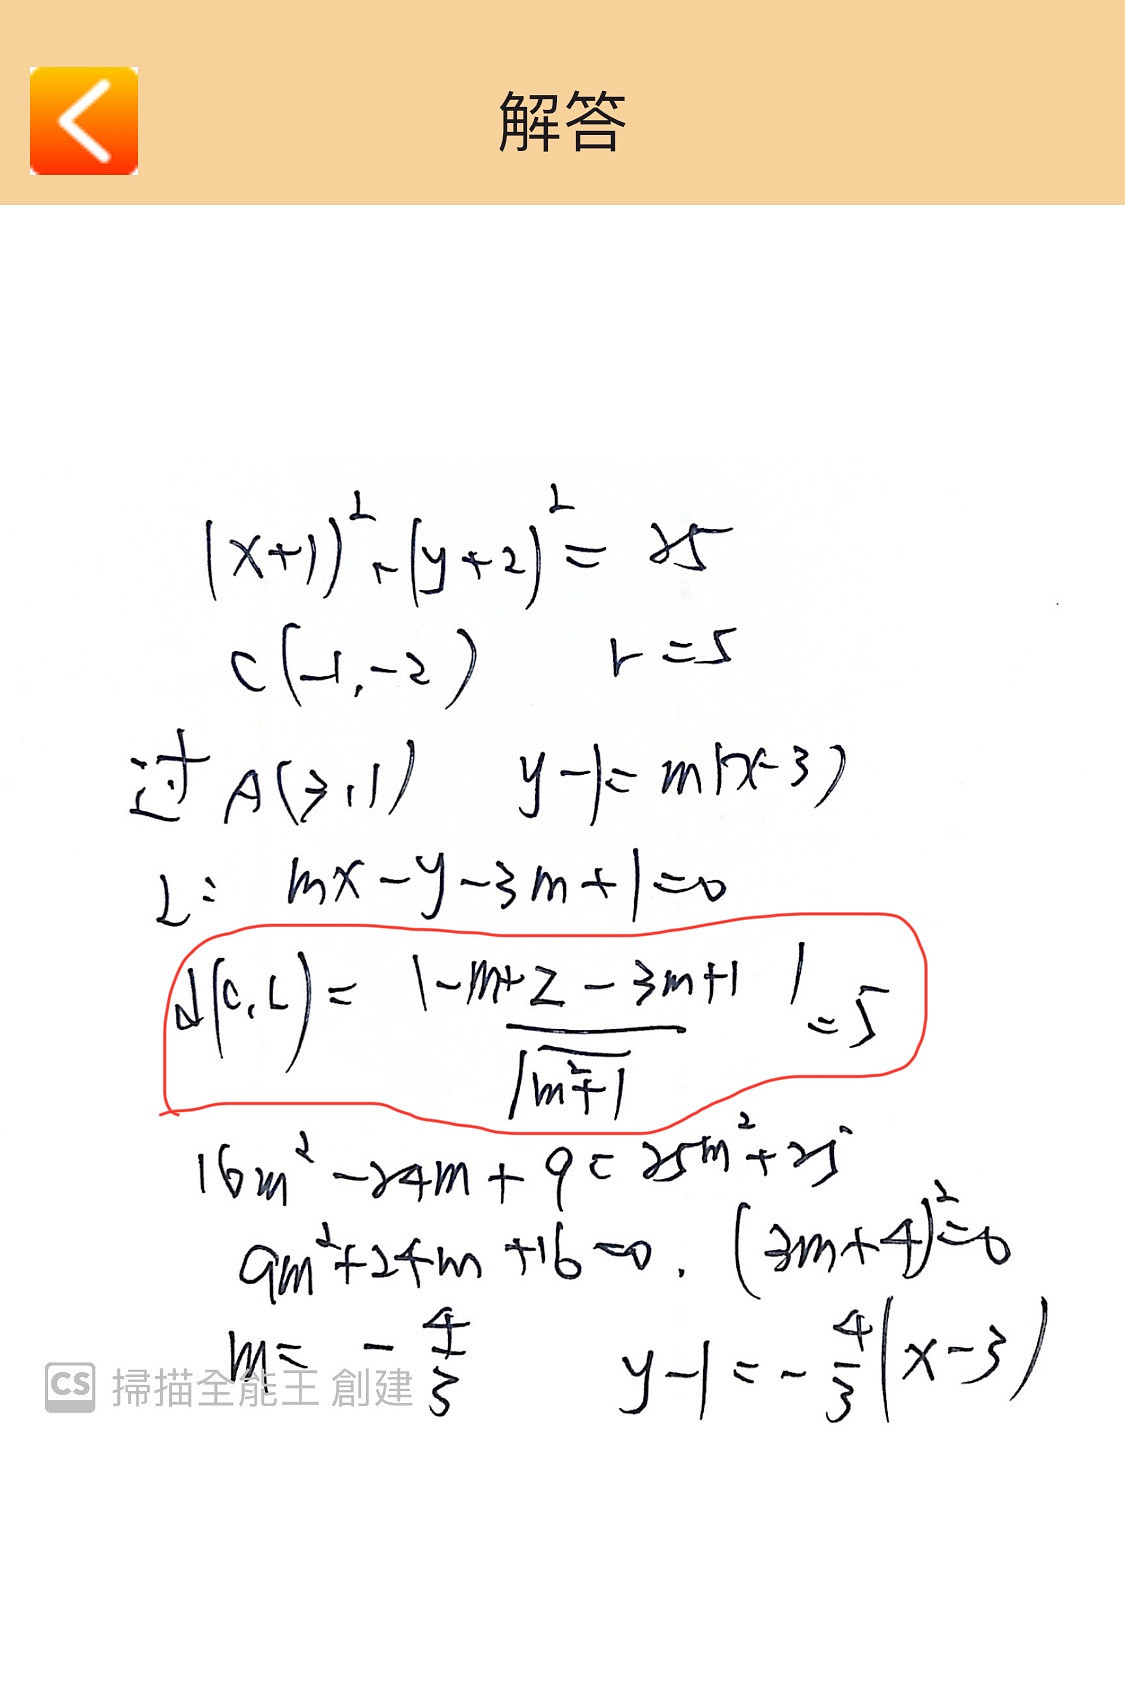 解答
(x+1)²+(y+2)²= 25
C(-1,-2) r=5
过 A(3,1) y-1= m(x-3)
L: mx-y-3m+1=0
d(C,L)= |-m+2-3m+1| / √(m²+1) =5
16m²-24m+9=25m²+25
9m²+24m+16=0. (3m+4)²=0
m= -4/3 y-1=-4/3(x-3)
CS 掃描全能王 創建